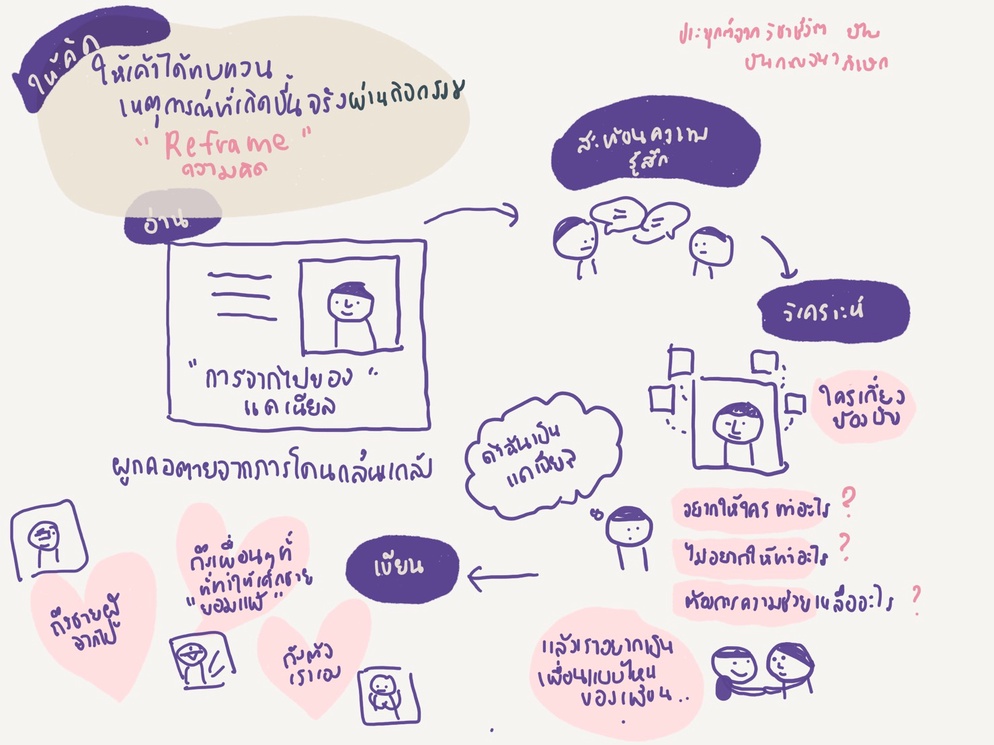 ให้คิด
ให้เค้าได้ทบทวน
เหตุการณ์ที่เกิดขึ้นจริงผ่านกิจกรรม
"Reframe"
ความคิด
ประยุกต์จากวิชาชีวิต
สะท้อนความ
รู้สึก
อ่าน
"การจากไปของ"
แดเนียล
ผูกคอตายจากการโดนกลั่นแกล้ง
วิเคราะห์
ใครเกี่ยว
ข้องบ้าง
ถ้าฉันเป็น
แดเนียล
อยากให้ใครทำอะไร?
ไม่อยากให้ทำอะไร?
ต้องการความช่วยเหลืออะไร?
แล้วเราอยากเป็น
เพื่อนแบบไหน
ของเพื่อน..
เขียน
ถึงเพื่อนๆที่
ที่ทำให้เด็กชาย
"ยอมแพ้"
ถึงชายผู้
จากไป
ถึงตัว
เราเอง